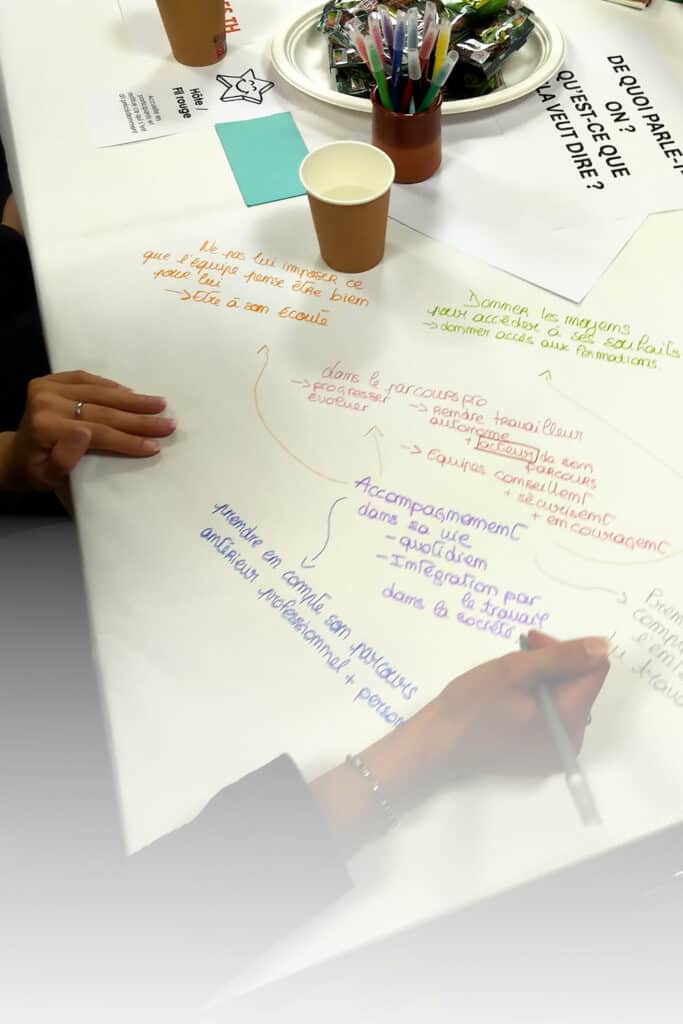 Hôte /
Fil rouge
Accueille les
participants et
DE QUOI PARLE-T
ON ?
QU'EST-CE QUE
LA VEUT DIRE ?
Ne pas lui imposer ce
que l'équipe pense être bien
pour lui
-> Etre à son écoute
Donner les moyens
pour accéder à ses souhaits
-> donner accès aux formations.
dans le parcours pro
-> progresser
évoluer
-> Rendre travailleur
autonome
+ acteur de son
parcours
-> Equipes conseillent
+ sécurisent
+ encouragent
Accompagnement
dans sa vie
- quotidien
- Intégration par
le travail
dans la société
prendre en compte son parcours
antérieur professionnel + person